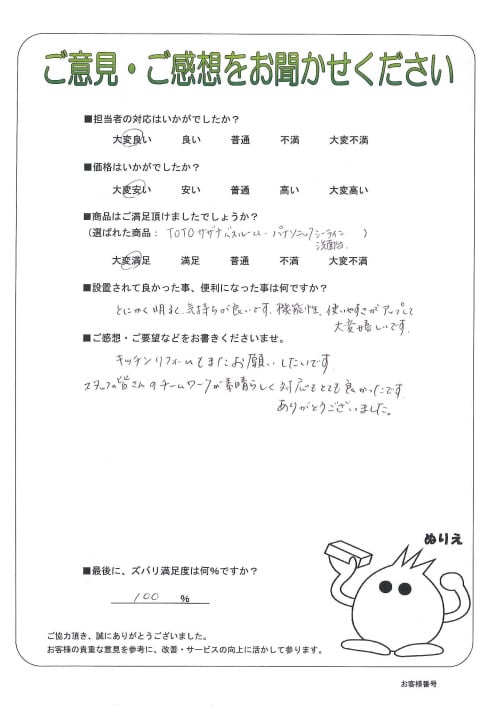 ご意見・ご感想をお聞かせください
■担当者の対応はいかがでしたか？
大変良い 良い 普通 不満 大変不満
■価格はいかがでしたか？
大変安い 安い 普通 高い 大変高い
■商品はご満足頂けましたでしょうか？
（選ばれた商品： TOTO サザナバスルーム・パナソニックシーライン ）
洗面台.
大変満足 満足 普通 不満 大変不満
■設置されて良かった事、便利になった事は何ですか？
とにかく明るく気持ちが良いです. 機能性、使いやすさがアップして
大変嬉しいです.
■ご感想・ご要望などをお書きくださいませ。
キッチンリフォームもまたお願いしたいです.
スタッフの皆さんのチームワークが素晴らしく対応もとても良かったです.
ありがとうございました。
ぬりえ
■最後に、ズバリ満足度は何％ですか？
100 ％
ご協力頂き、誠にありがとうございました。
お客様の貴重な意見を参考に、改善・サービスの向上に活かして参ります。
お客様番号